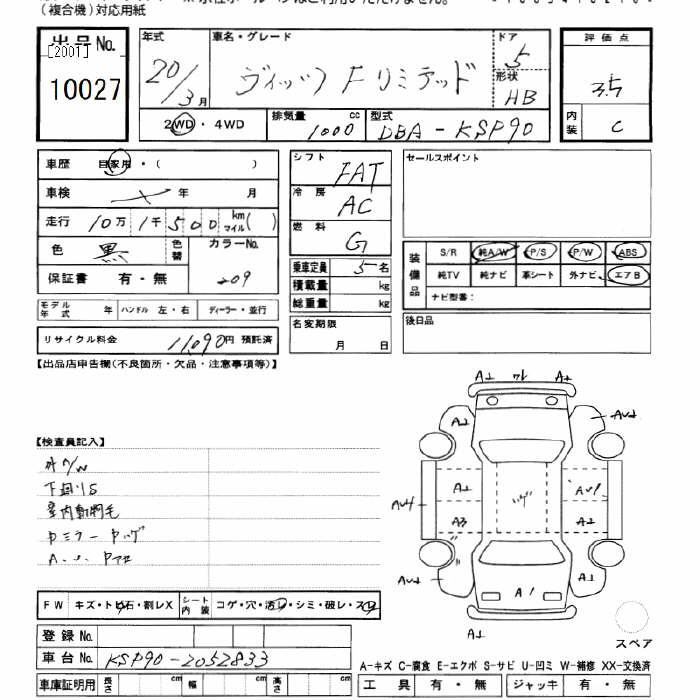 (複合機)対応用紙
出品No.
[200T]
10027
年式
20/3月
車名・グレード
ヴィッツ Fリミテッド
ドア
5
形状
HB
評価点
3.5
内装
C
2WD・4WD
排気量
1000cc
型式
DBA-KSP90
車歴 自家用・( )
車検 年 月
走行 10万1千500 km マイル( )
色 黒
色替
カラーNo.
209
保証書 有・無
モデル年式 年 ハンドル 左・右 ディーラー・並行
リサイクル料金 11,090円 預託済
シフト
FAT
冷房
AC
燃料
G
乗車定員 5名
積載量 kg
総重量 kg
名変期限
月 日
セールスポイント
装備品
S/R 純A/W P/S P/W ABS
純TV 純ナビ 革シート 外ナビ エアB
ナビ型番:
後日品
【出品店申告欄(不良箇所・欠品・注意事項等)】
【検査員記入】
下廻りS
室内動物毛
A1
FW キズ・トビ石・割レX
シート内装 コゲ・穴・汚レ・シミ・破レ・スレ
登録No.
車台No. KSP90-2052833
車庫証明用 長さ cm 幅 cm 高さ cm
スペア
A-キズ C-腐食 E-エクボ S-サビ U-凹ミ W-補修 XX-交換済
工具 有・無 ジャッキ 有・無